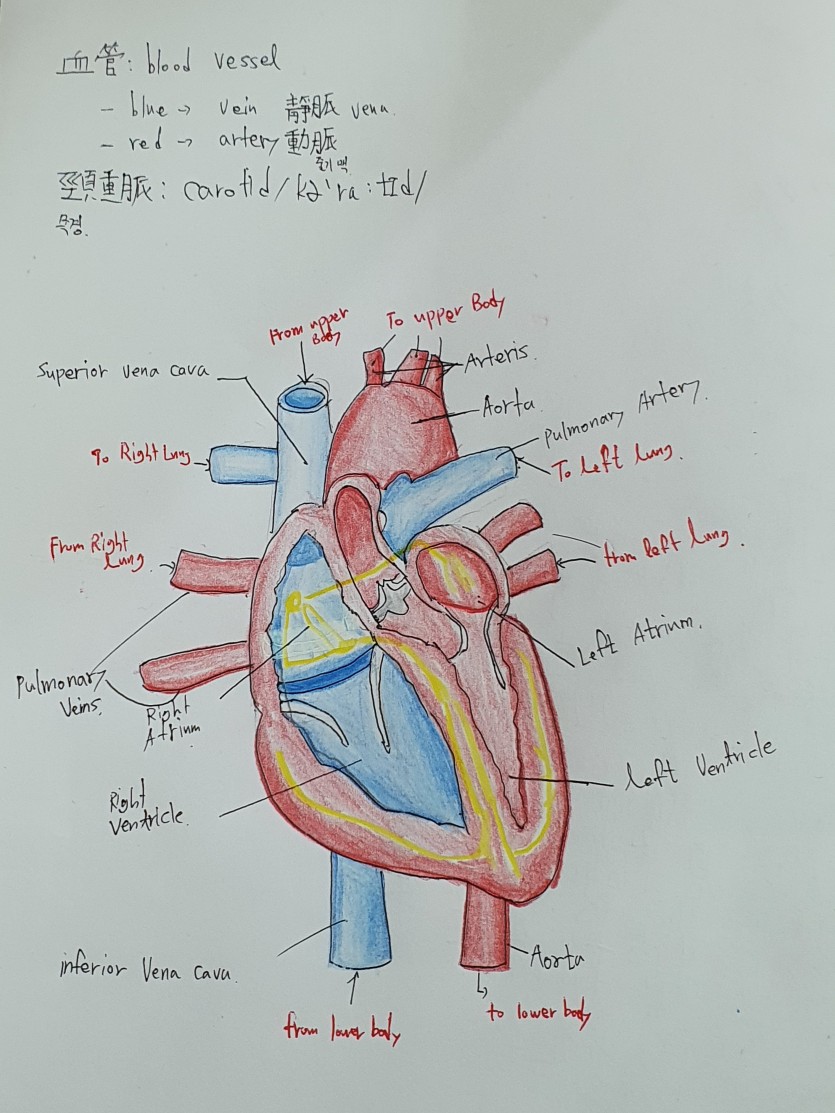 血管: blood vessel
- blue → vein 靜脈 vena.
- red → artery 動脈
頸動脈: carotid /kə'ra:tɪd/
목경.
From upper Body
To upper Body
Arteris.
Superior vena cava
Aorta.
Pulmonary Artery.
To Right Lung
To Left lung.
From Right Lung
from left lung.
Left Atrium.
Pulmonary Veins.
Right Atrium
Left Ventricle
Right Ventricle.
inferior Vena cava.
Aorta
from lower body
to lower body